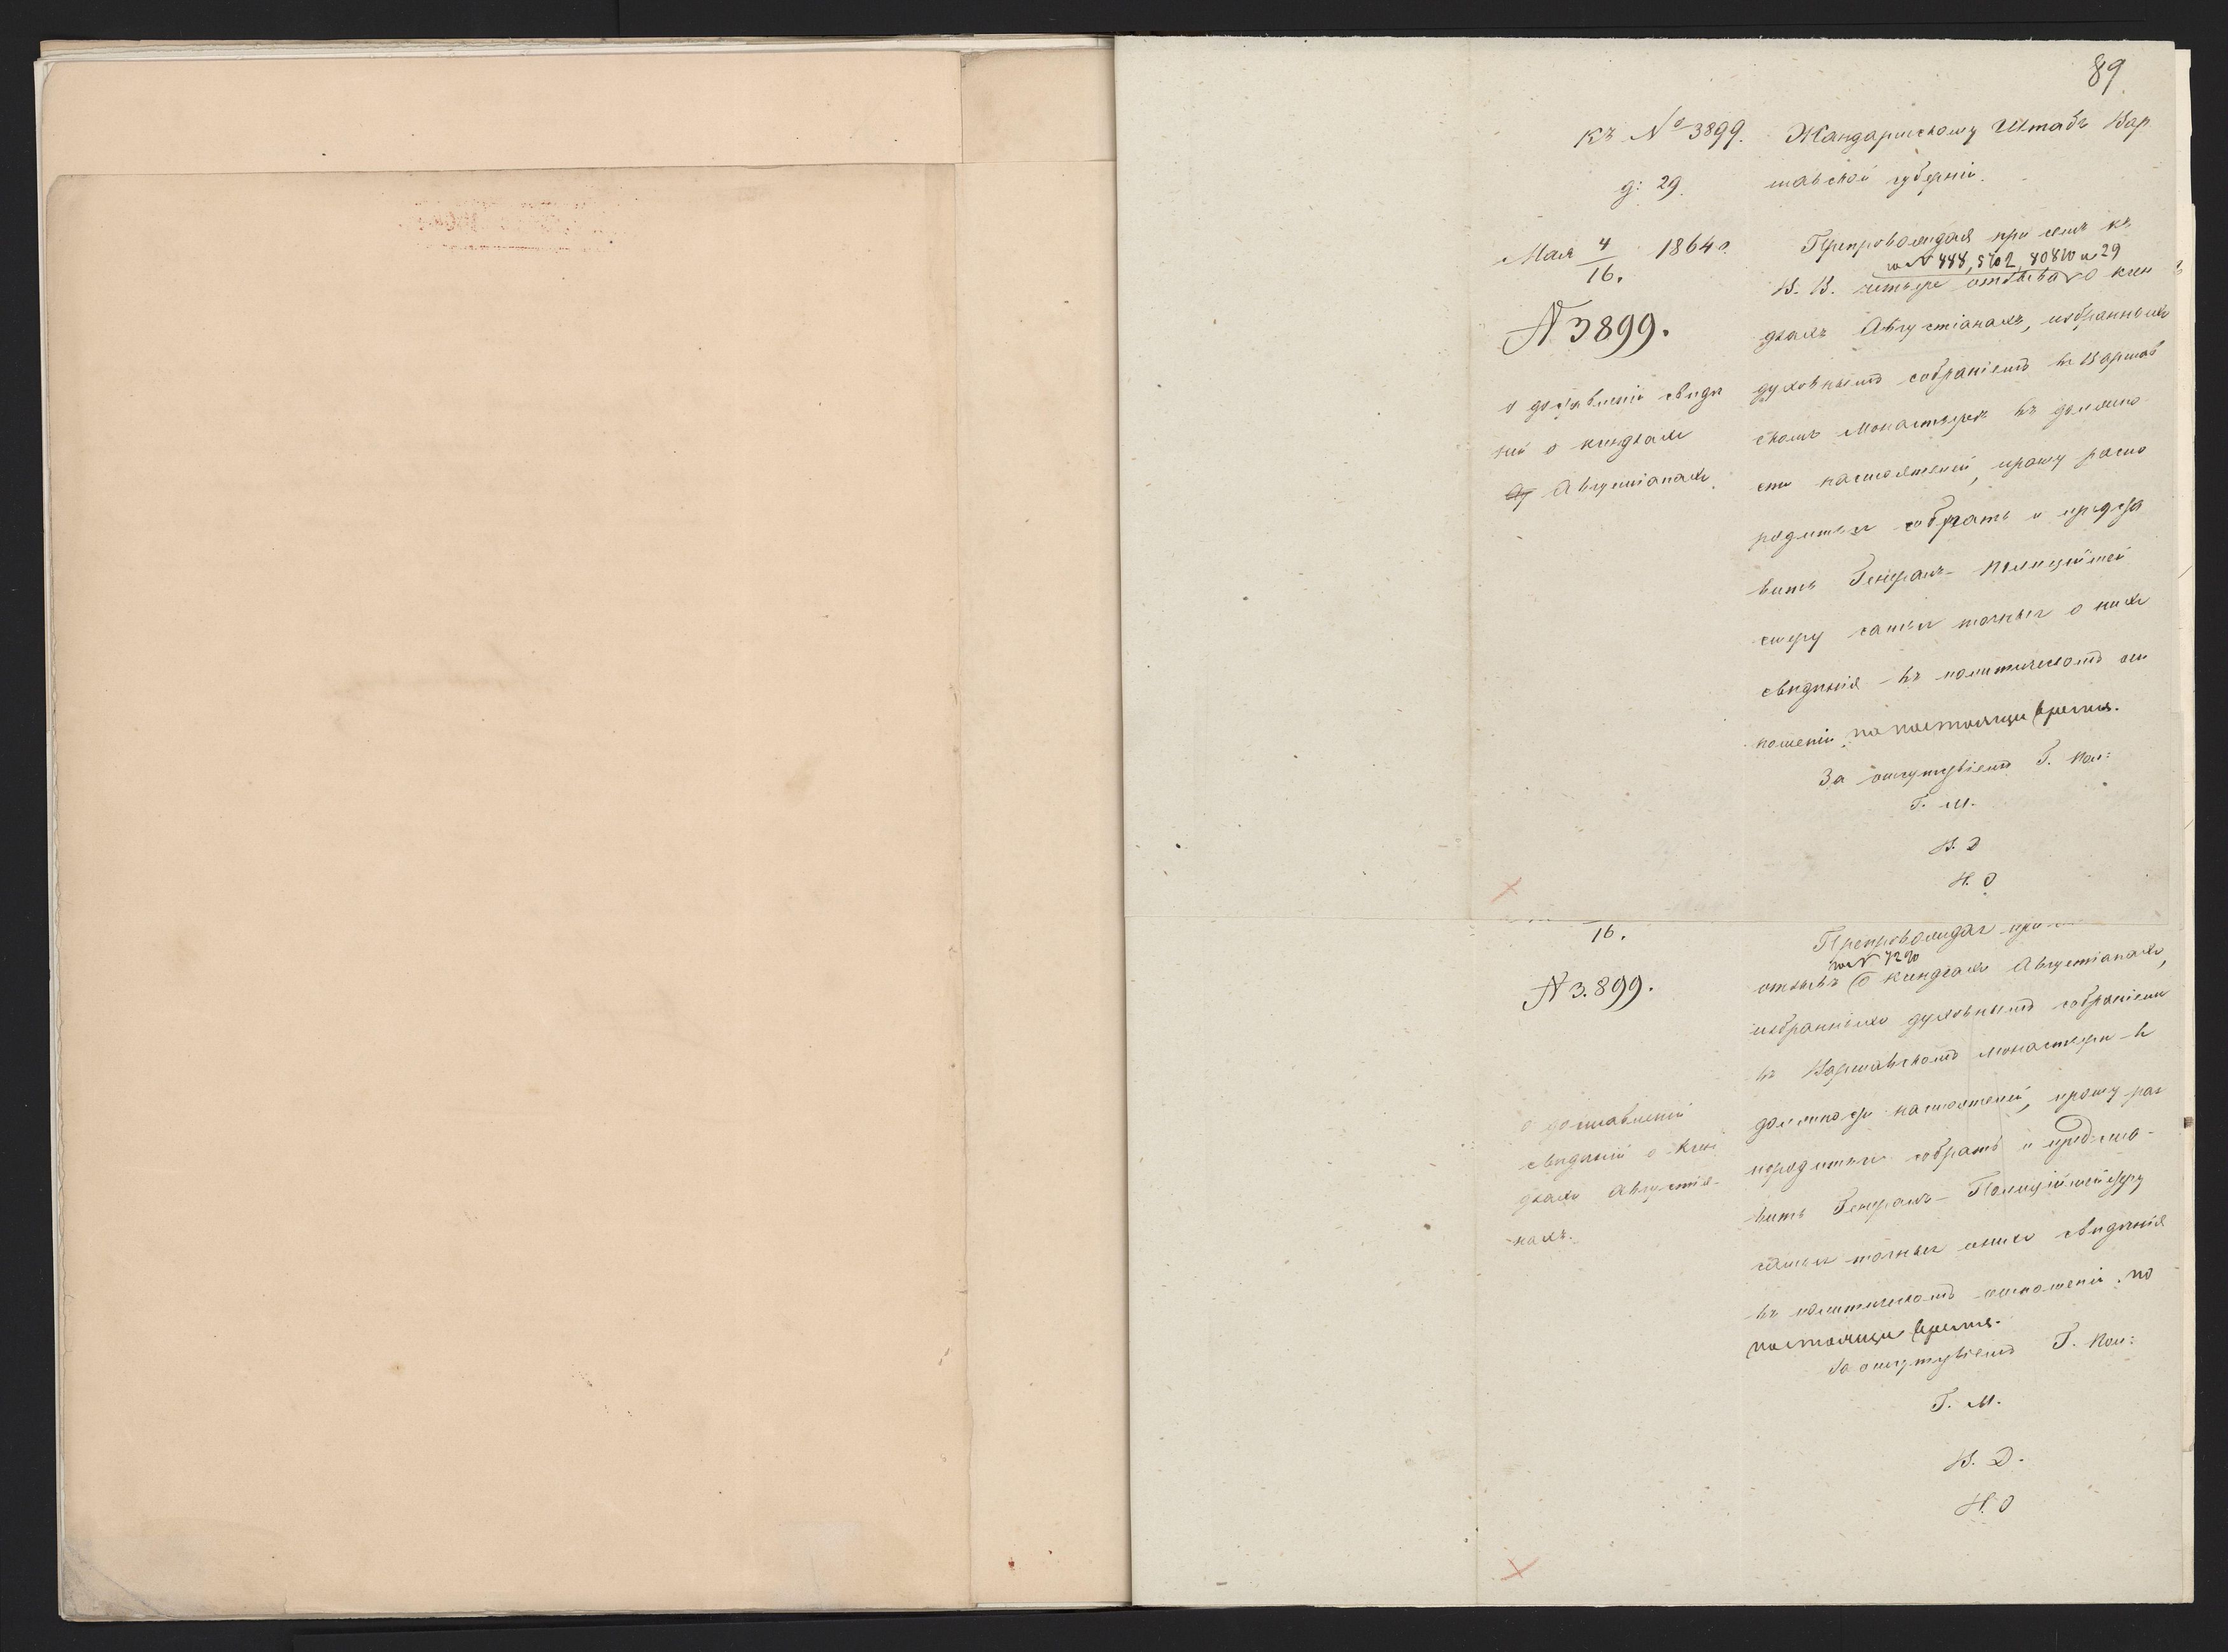 89
Къ № 3899.
д: 29.
Мая 4/16. 1864 г.
N 3899.
о доставленіи свѣдѣ
ній о ксендзахъ
Августіанахъ.
Жандармскому Штабъ Вар
шавской губерніи.
Препровождая при семъ къ
за N 448, 5702, 80810 и 29
В. В. четыре отзыва о ксен
дзахъ Августіанахъ, избранныхъ
духовнымъ собраніемъ въ Варшав
скомъ Монастырѣ въ должно
сти настоятелей, прошу распо
рядиться собрать и предста
вить Генералъ-Полицiймей
стеру самыя точныя о нихъ
свѣдѣнія въ политическомъ от
ношеніи по настоящее время.
За отсутствіемъ Г. Пол:
Г. М.
В. Д
Н. О
16.
N 3.899.
о доставленіи
свѣдѣній о Ксен
дзахъ Августіа-
нахъ.
Препровождая при
за N 7290
отзывъ о ксендзахъ Августіанахъ,
избранныхъ духовнымъ собраніемъ
въ Варшавскомъ монастырѣ въ
должности настоятелей, прошу рас
порядиться собрать и предста-
вить Генералъ-Полицiймейстеру
самыя точныя о нихъ свѣдѣнія
въ политическомъ отношеніи по
настоящее время.
За отсутствіемъ Г. Пол:
Г. М.
В. Д.
Н. О